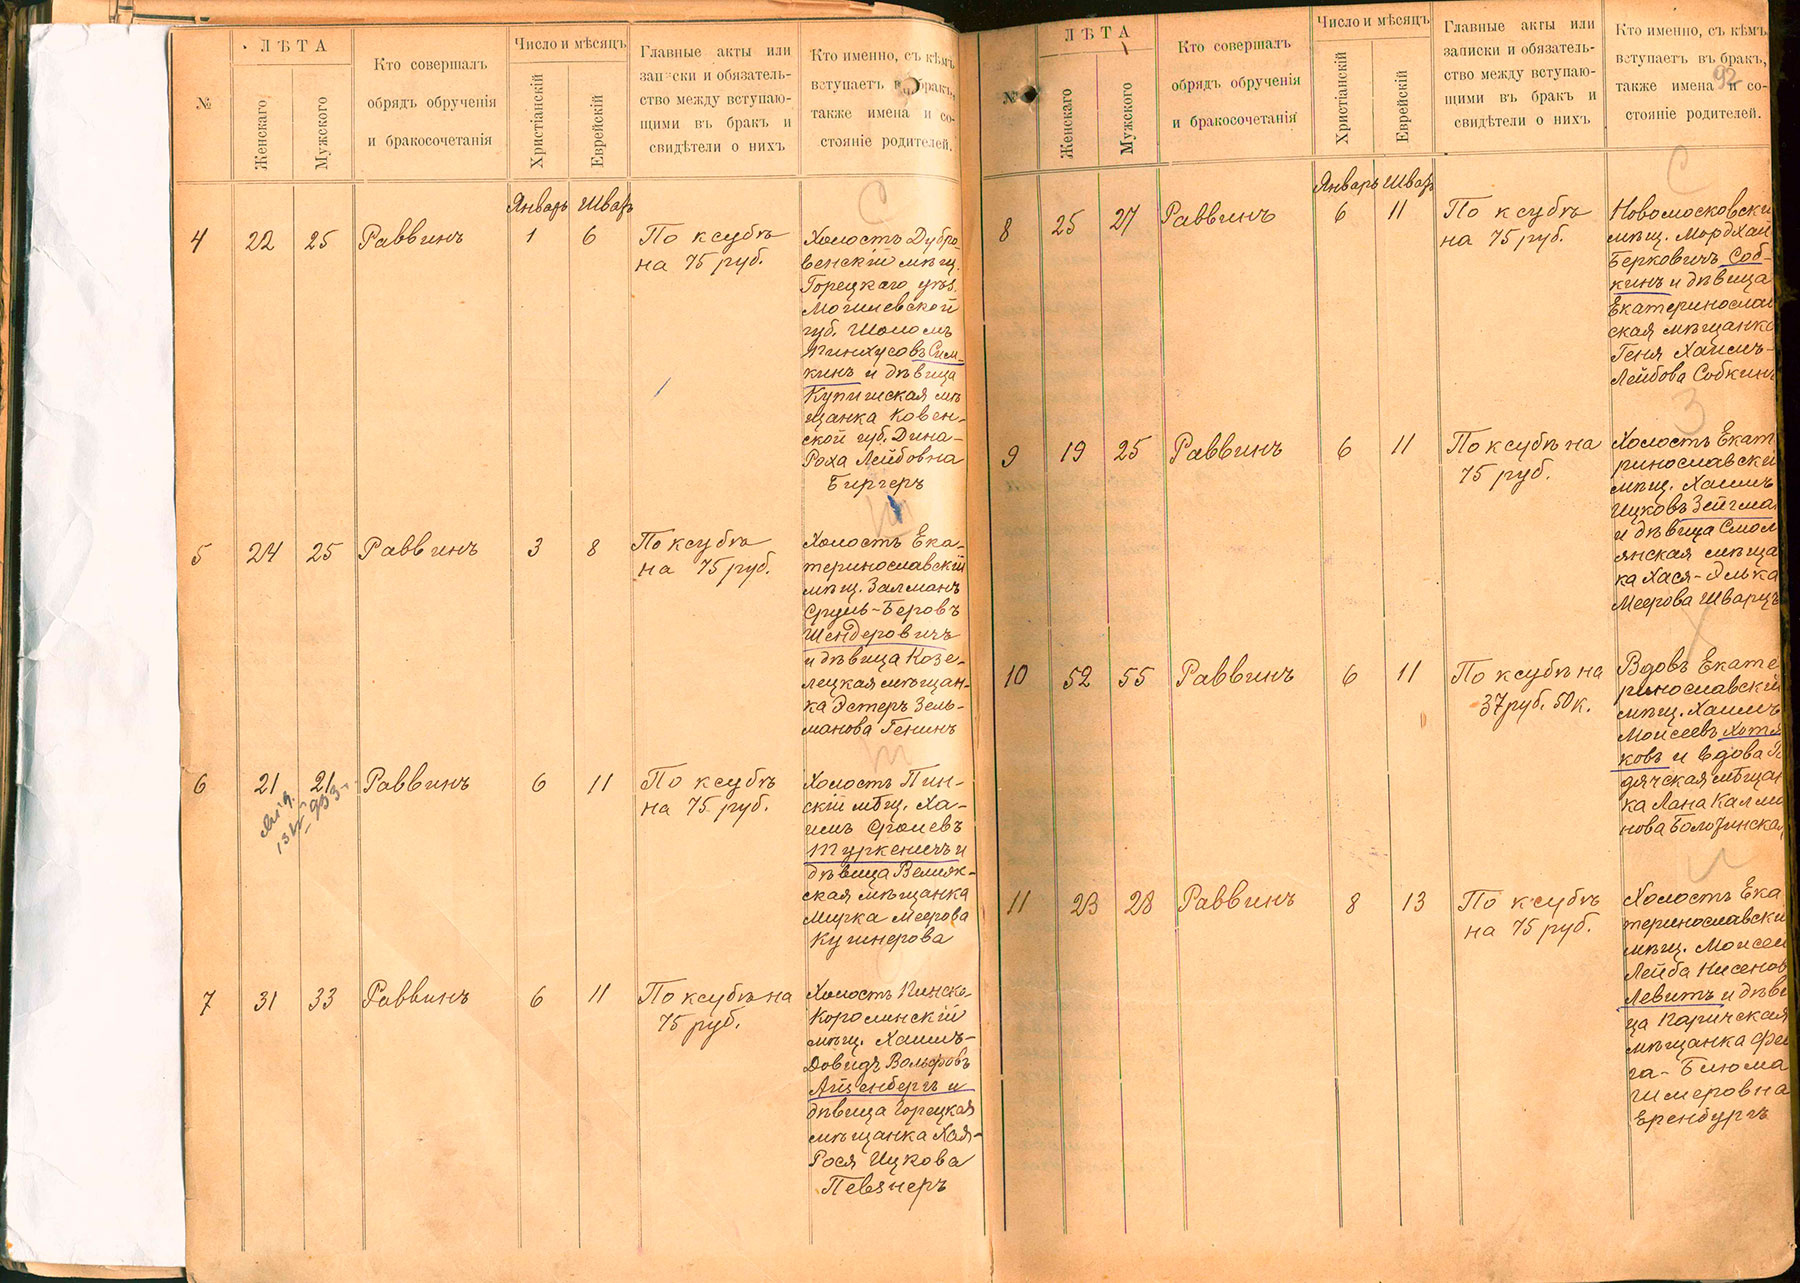 №
ЛѢТА
Женскаго
Мужского
Кто совершалъ
обрядъ обрученія
и бракосочетанія
Число и мѣсяцъ
Христіанскій
Еврейскій
Главные акты или
записки и обязатель-
ство между вступаю-
щими въ бракъ и
свидѣтели о нихъ
Кто именно, съ кѣмъ
вступаетъ въ бракъ,
также имена и со-
стояніе родителей.
Январь Шватъ
4 22 25 Раввинъ 1 6
По ксубѣ
на 75 руб.
С
Холостъ Дубро-
венскій мѣщ.
Горецкаго уѣз.
Могилевской
губ. Шоломъ
Пинхусовъ Сим-
кинъ и дѣвица
Купишская мѣ
щанка Ковен-
ской губ. Дина-
Роха Лейбовна
Биргеръ
5 24 25 Раввинъ 3 8
По ксубѣ
на 75 руб.
Ш
Холостъ Ека-
теринославскій
мѣщ. Залманъ
Сруль-Беровъ
Шендеровичъ
и дѣвица Козе-
лецкая мѣщан-
ка Эстеръ Зель-
манова Генинъ
6 21 21 Раввинъ 6 11
По ксубѣ
на 75 руб.
Т
Холостъ Пин-
скій мѣщ. Ха-
имъ
Туркеничъ и
дѣвица
ская мѣщанка
Мирка Меерова
Кушнерова
7 31 33 Раввинъ 6 11
По ксубѣ на
75 руб.
Холостъ Пинско-
Каролинскій
мѣщ. Хаимъ-
Довидъ Вольфовъ
Айзенбергъ и
дѣвица Горецкая
мѣщанка Хая-
Рося Ицкова
Певзнеръ
№
ЛѢТА
Женскаго
Мужского
Кто совершалъ
обрядъ обрученія
и бракосочетанія
Число и мѣсяцъ
Христіанскій
Еврейскій
Главные акты или
записки и обязатель-
ство между вступаю-
щими въ бракъ и
свидѣтели о нихъ
Кто именно, съ кѣмъ
вступаетъ въ бракъ,
92
также имена и со-
стояніе родителей.
Январь Шватъ
8 25 27 Раввинъ 6 11
По ксубѣ
на 75 руб.
С
Новомосковскі
мѣщ. Мордхай
Берковичъ Соб-
кинъ и дѣвица
Екатеринослав
ская мѣщанка
Геня Хаимъ-
Лейбова Собкинъ
9 19 25 Раввинъ 6 11
По ксубѣ на
75 руб.
З
Холостъ Екат
ринославскі
мѣщ. Хаимъ
Ицковъ Зейгма
и дѣвица Смол
янская мѣща
ка Хася-Элька
Меерова Шварцъ
10 52 55 Раввинъ 6 11
По ксубѣ на
37 руб. 50 к.
Х
Вдовъ Екате
ринославскій
мѣщ. Хаимъ
Моисеевъ Хотя
ковъ и вдова Г
дячская мѣщан
ка Лана Калма
нова
11 23 28 Раввинъ 8 13
По ксубѣ
на 75 руб.
Холостъ Ека
теринославскі
мѣщ. Моисей
Лейба Нисенов
Левитъ и дѣви
ца Паричская
мѣщанка Фей
га-Блюма
Шмеровна
Еренбургъ